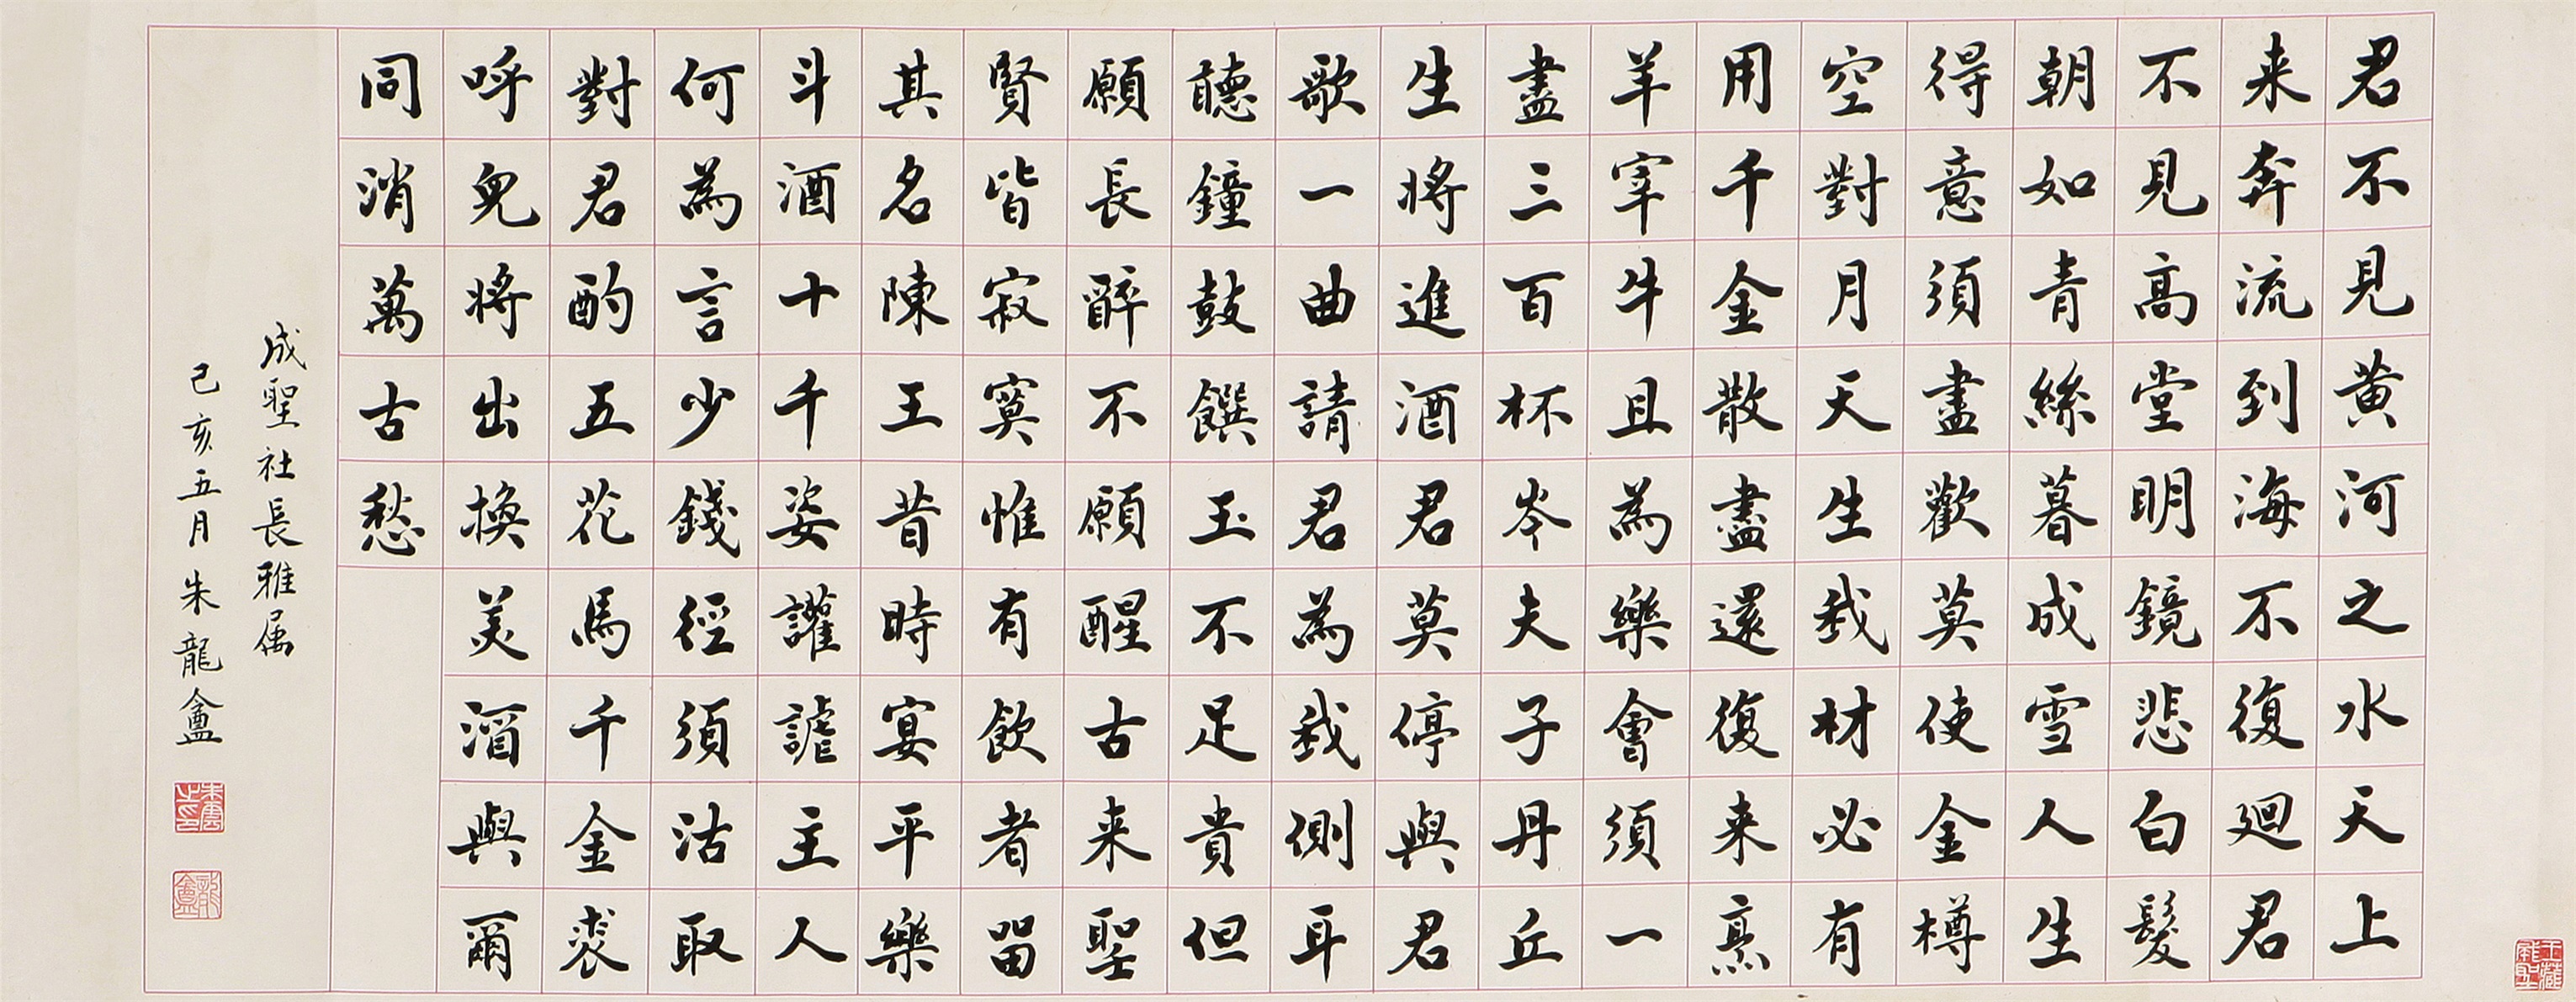 君不見黄河之水天上
来奔流到海不復廻君
不見高堂明鏡悲白髮
朝如青絲暮成雪人生
得意須盡歡莫使金樽
空對月天生我材必有
用千金散盡還復来烹
羊宰牛且為樂會須一
盡三百杯岑夫子丹丘
生將進酒君莫停與君
歌一曲請君為我側耳
聽鐘鼓饌玉不足貴但
願長醉不願醒古来聖
賢皆寂寞惟有飲者留
其名陳王昔時宴平樂
斗酒十千姿讙謔主人
何為言少錢徑須沽取
對君酌五花馬千金裘
呼兒將出換美酒與爾
同消萬古愁
成聖社長雅属
己亥五月朱龍盦
龍盦